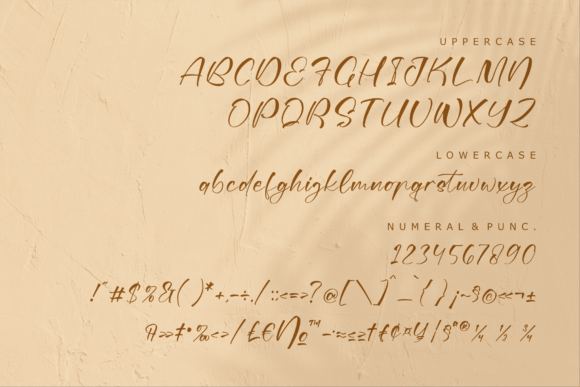 UPPERCASE
ABCDEFGHIJKLMN
OPQRSTUVWXYZ
LOWERCASE
abcdefghijklmnopqrstuvwxyz
NUMERAL & PUNC.
1234567890
!"#$%&()*+,-÷./:;<=>?@[\]^_{}¡~§©«¬±